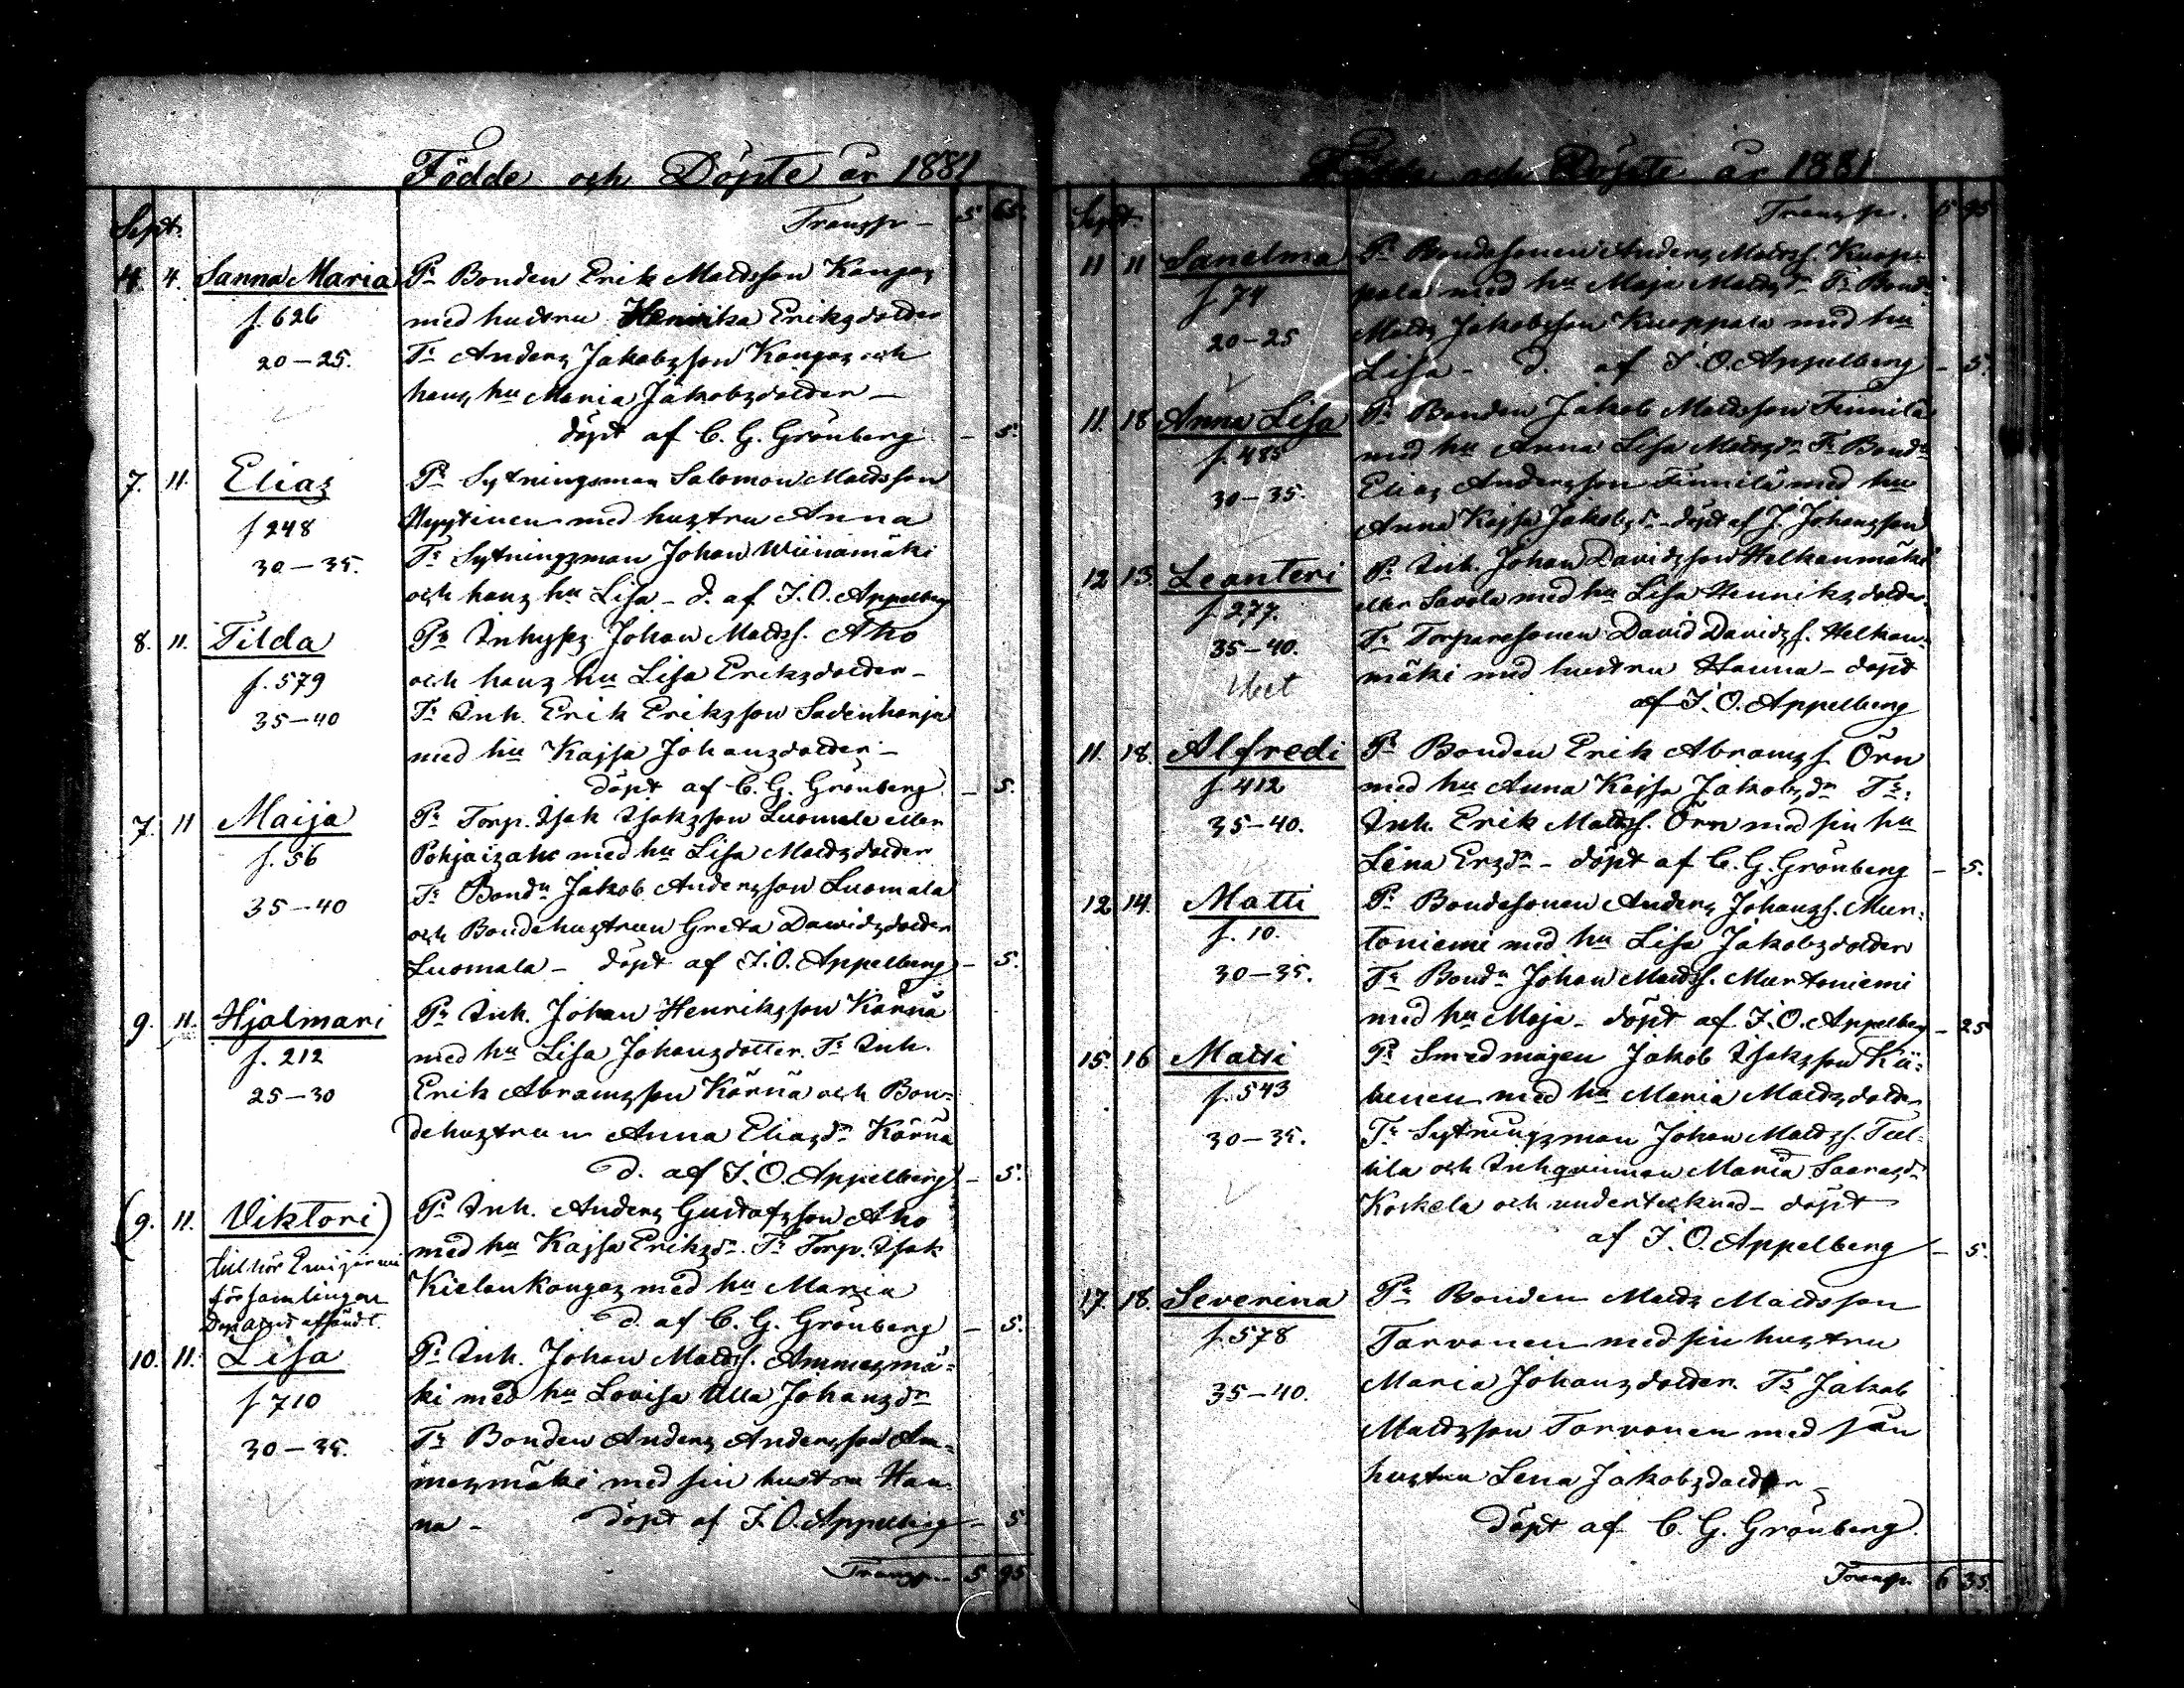 Födde och Döpte år 1881
Sept. Transpr — 5 65.
4. 4. Sanna Maria Pr Bonden Erik Mattsson Kangas
f. 626 med hustru Henrika Eriksdotter
20—25. Tr Anders Jakobsson Kangas och
hans hu Maria Jakobsdotter —
döpt af C. G. Grönberg — 5.
7. 11. Elias Pr Sytningsman Salomon Mattsson
f 248 Nyytinen med hustru Anna
30—35. Tr Sytningsman Johan Wiinamäki
och hans hu Lisa — d. af I. O. Appelberg
8. 11. Tilda Pr Inhyses Johan Matss. Aho
f. 579 och hans hu Lisa Eriksdotter —
35—40 Tr Inh. Erik Eriksson Sadenharju
med hu Kajsa Johansdotter —
döpt af C. G. Grönberg — 5.
7. 11 Maija Pr Torp. Isak Isaksson Luomala eller
f. 56 Pohjaisaho med hu Lisa Mattsdotter
35—40 Tr Bondn Jakob Andersson Luomala
och Bondehustrun Greta Davidsdotter
Luomala — döpt af I. O. Appelberg — 5.
9. 11. Hjalmari Pr Inh. Johan Henriksson Kärnä
f. 212 med hu Lisa Johansdotter. Tr Inh.
25—30 Erik Abramsson Kärnä och Bon-
dehustrun Anna Eliasdr Kärnä
d. af I. O. Appelberg — 5.
(9. 11. Viktori) Pr Inh. Anders Gustafsson Aho
tillhör Evijärvi med hu Kajsa Eriksdr. Tr Torp. Isak
församlingen Kielenkangas med hu Maria
afsändt. d. af C. G. Grönberg — 5.
10. 11. Lisa Pr Inh. Johan Matss. Ammesmä-
f 710 ki med hu Lovisa Ulla Johansdr
30—35. Tr Bonden Anders Andersson Am-
mesmäki med sin hustru Han-
na — döpt af I. O. Appelberg — 5
Transpr. — 5 95
Födde och Döpte år 1881
Sept. Transpr. 5 95
11 11 Sanelma Pr Bondesonen Anders Matss. Kuop-
f 74 pala med hu Maja Matsdr Tr Bondn
20—25 Matts Jakobsson Kuoppala med hu
Lisa — d. af I. O. Appelberg — 5.
11. 18 Anna Lisa Pr Bonden Jakob Mattsson Finnilä
f. 485 med hu Anna Lisa Matsdr Tr Bondn
30—35. Elias Andersson Finnilä med hu
Anna Kajsa Jakobsdr — döpt af J. Johansson
12 13. Leanteri Pr Inh. Johan Davidsson Helkanmäki
f. 277. eller Savola med hu Lisa Henriksdotter.
35—40. Tr Torparesonen David Davidss. Helkan-
mäki med hustru Hanna — döpt
af I. O. Appelberg
11. 18. Alfredi Pr Bonden Erik Abramss. Örn
f 412 med hu Anna Kajsa Jakobsdr Tr:
35—40. Inh. Erik Matss. Örn med sin hu
Lena Ersdr — döpt af C. G. Grönberg — 5.
12 14. Matti Pr Bondesonen Anders Johanss. Mur-
f. 10. toniemi med hu Lisa Jakobsdotter
30—35. Tr Bondn Johan Matss. Murtoniemi
med hu Maja — döpt af I. O. Appelberg — 25
15. 16 Matti Pr Smedmågen Jakob Isaksson
f. 543 med hu Maria Mattsdotter
30—35. Tr Sytningsman Johan Matss.
och Inhqvinnan Maria
Koskela och undertecknad — döpt
af I. O. Appelberg — 5.
17. 18. Severina Pr Bonden Matts Mattsson
f. 578 Tarvonen med sin hustru
35—40. Maria Johansdotter. Tr Jakob
Mattsson Tarvonen med sin
hustru Lena Jakobsdotter —
döpt af C. G. Grönberg.
Transpr. 6 35.